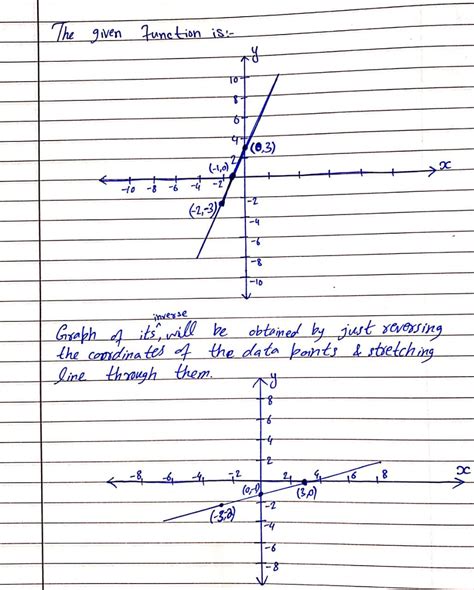 The given Function is:-
y
10
8
6
4
(0,3)
2
(-1,0)
x
-10 -8 -6 -4 -2
(-2,-3)
-2
-4
-6
-8
-10
inverse
Graph of its ^ will be obtained by just reversing
the coordinates of the data points & stretching
line through them.
y
8
6
4
2
x
-8 -6 -4 -2 2 4 6 8
(0,-1) (3,0)
(-3,-2)
-2
-4
-6
-8